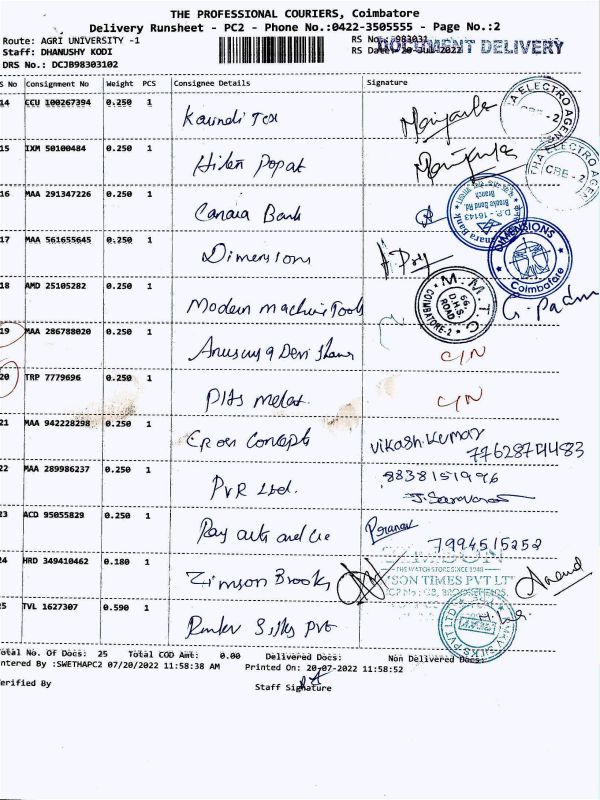 THE PROFESSIONAL COURIERS, Coimbatore
Delivery Runsheet - PC2 - Phone No.:0422-3505555 - Page No.:2
Route: AGRI UNIVERSITY -1
RS No.: 983031
Staff: DHANUSHY KODI
RS Date: 20-Jul-2022
DOCUMENT DELIVERY
DRS No.: DCJB98303102
S No Consignment No Weight PCS Consignee Details Signature
14 CCU 100267394 0.250 1
15 IXM 50100484 0.250 1 Hiten Popat
16 MAA 291347226 0.250 1 Canara Bank
17 MAA 561655645 0.250 1 Dimensions
DIMENSIONS
Coimbatore
18 AMD 25105282 0.250 1 Modern machine Tools
M.M.T.C.
COIMBATORE-2
D.H.S. ROAD
G. Padm
19 MAA 286788020 0.250 1 C/N
20 TRP 7779696 0.250 1 C/N
21 MAA 942228298 0.250 1 Cross Concepts Vikash.Kumar
7762874483
22 MAA 289986237 0.250 1 PVR Ltd. 8838151996
J. Saravanan
23 ACD 95055829 0.250 1 Ray arts and Pranav
7994515252
24 HRD 349410462 0.180 1 Zimson Brooks
THE WATCH STORE SINCE 1948
SON TIMES PVT LT
Anand
25 TVL 1627307 0.590 1 Silks Pvt
Total No. Of Docs: 25 Total COD Amt: 0.00 Delivered Docs: Non Delivered Docs:
ntered By :SWETHAPC2 07/20/2022 11:58:38 AM Printed On: 20-07-2022 11:58:52
Verified By
Staff Signature